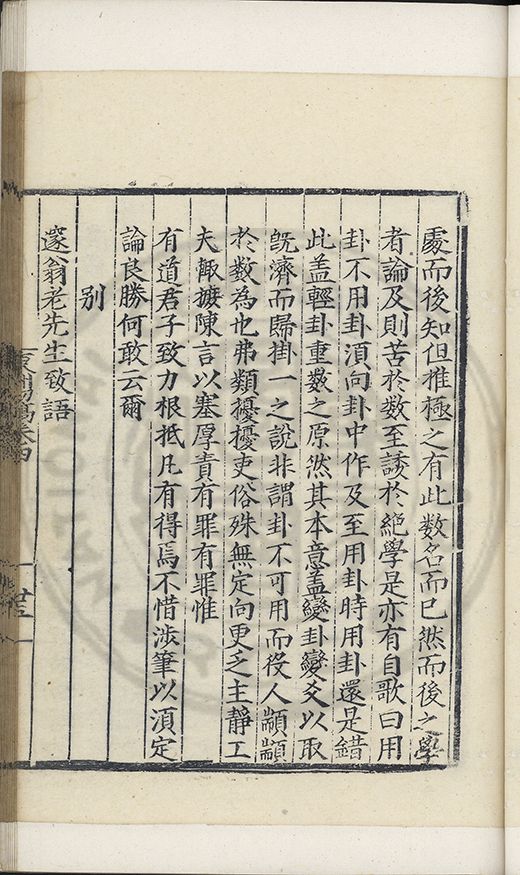 處而後知但推極之有此數名而已然而後之學
者論及則苦於數至諉於絕學是亦有自歌曰用
卦不用卦須向卦中作及至用卦時用卦還是錯
此盖輕卦重數之原然其本意盖變卦變爻以取
旣濟而歸掛一之說非謂卦不可用而役人顓顓
於數為也弗類擾擾吏俗殊無定向更乏主靜工
夫輒摭陳言以塞厚責有罪有罪惟
有道君子致力根抵凡有得焉不惜涉筆以須定
論良勝何敢云爾
別
邃翁老先生致語
卷四
廿五